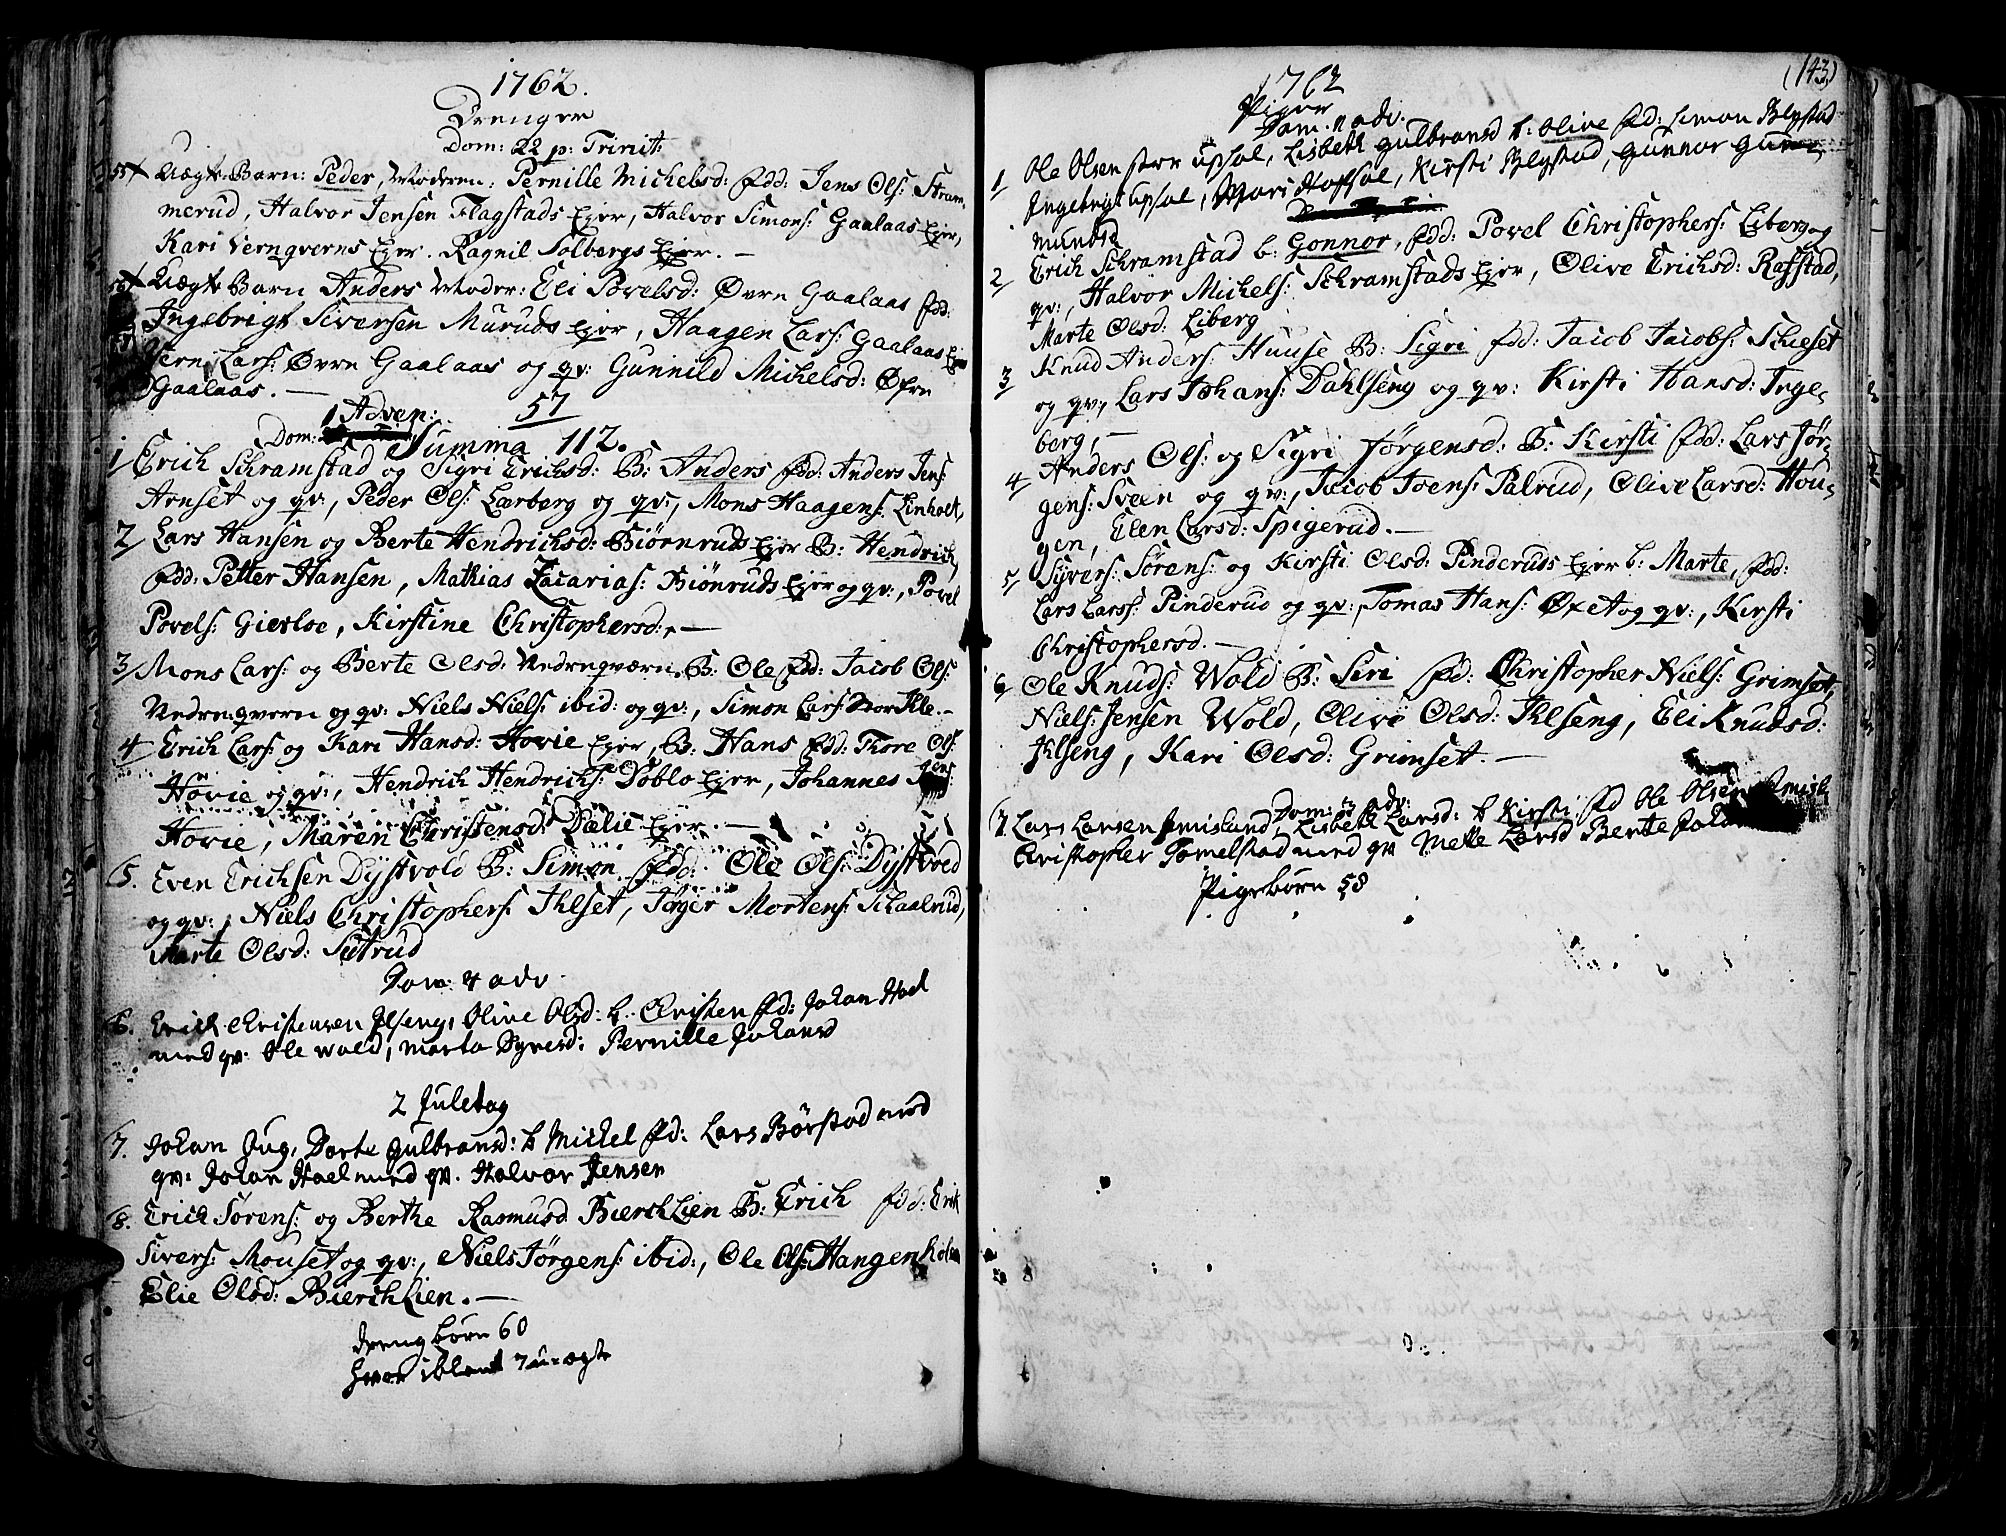 1762.
Drenger
Dom: 22 p: Trinit:
55 + Uægte Barn: Peder, Moderen: Pernille Michelsd: fdd: Jens Ols: Stram-
merud, Halvor Jensen Flagstads Ejer, Halvor Simons: Gaalaas Ejer,
Kari Vernqverns Ejer. Ragnil Solbergs Ejer. —
56 + Uægte Barn Anders Moder: Eli Povelsd: Øvre Gaalaas fdd:
Ingebrigt Siversen Muruds Ejer, Haagen Lars: Gaalaas Ejer
Jern Lars: Øvre Gaalaas og qv: Gunnild Michelsd: Øfre
Gaalaas. —
57
Dom: 1 Adven:
Summa 112.
1/ Erich Schramstad og Sigri Erichsd: B: Anders fdd: Anders Jens:
Arnset og qv:, Peder Ols: Lærberg og qv:, Mons Haagens: Linholt,
2/ Lars Hansen og Berte Hendrichsd: Biørnruds Ejer B: Hendrich,
fdd: Petter Hansen, Mathias Zacarias: Biönruds Ejer og qv:, Povel
Povels: Gierloe, Kirstine Christophersd:, —
3/ Mons Lars: og Berte Olsd: Nedreqværn. B: Ole fdd: Jacob Ols:
Nedreqvern og qv: Niels Niels: ibid: og qv:, Simon Lars: Stor Ihle. -
4/ Erich Lars: og Kari Hansd: Hovie Ejer, B: Hans fdd: Thore Ols:
Hovie og qv:, Hendrich Hendrichs: Dòblo Ejer, Johannes Jens:
Hovie, Maren Christensd: Dælie Ejer. —
5. Even Erichsen Dÿstvold B: Simon fdd: Ole Ols: Dÿstvold
og qv:, Niels Christophers: Ihlset, Jøger Mortens: Schaalrud,
Marte Olsd: Sætrud
Dom: 4 adv.
6. Erich Christensen Ilseng, Olive Olsd: b: Christen fdd: Johan Hoel
med qv: Ole Wold, Marta Syversd: Pernille Johansd
2 Juletag
7. Johan Aug, Dorte Gulbransd: b Michel fd: Lars Börstad med
qv: Johan Hoel med qv. Halvor Jensen
8. Erich Sørens: og Berthe Rasmusd BierchLien B: Erich fdd: Erik
Sivers: Mouset og qv:, Niels Jørgens: ibid:, Ole Ols: Hangenholm
Elie Olsd: BierchLien. —
Dreng börn 60
hvor iblant 7 u-ægte
(143)
1762
Piger
Dom. 11 adv.
1 Ole Olsen stor Upsal, Lisbeth Gulbransd b: Olive fd: Simon Blystad
Ingebrigt Upsal, Mari Hoffsol, Kirsti Blystad, Gunnor Gun-
mundsd
2/ Erich Schramstad b: Gonnor, fdd: Povel Christophers: Liberg og
qv:, Halvor Michels: Schramstads Ejer, Olive Erichsd: Rafstad,
Marte Olsd: Liberg
3 Knud Anders: Huuse B: Sigri fdd: Jacob Jacobs: Schieset
og qv:, Lars Johans: Dahlseng og qv: Kirsti Hansd: Inge-
berg, —
4/ Anders Ols: og Sigri Jørgensd: B: Kirsti fdd: Lars Jør-
gens: Sveen og qv:, Jacob Joens: Palrud, Olive Larsd: Hou-
gen, Elen Larsd: Spigerud. —
5/ Syvers: Sørens: og Kirsti Olsd: Pinderuds Ejer b: Marte, fdd:
Lars Larss: Pinderud og qv:, Tomas Hans: Øxet og qv:, Kirsti
Christophersd. —
6/ Ole Knuds: Wold B: Siri fd: Christopher Niels: Grimset,
Niels: Jensen Wold, Olive Olsd: Ihlseng, Eli Knudsd:
Ilseng, Kari Olsd: Grimset. —
Dom: 3 adv:
7 Lars Larsen Amislund, Lisbeth Larsd: b Kirsti fd Ole Olsen Amisl
Christopher Tomelstad med qv Mette Larsd Berte Joha
Pigebörn 58